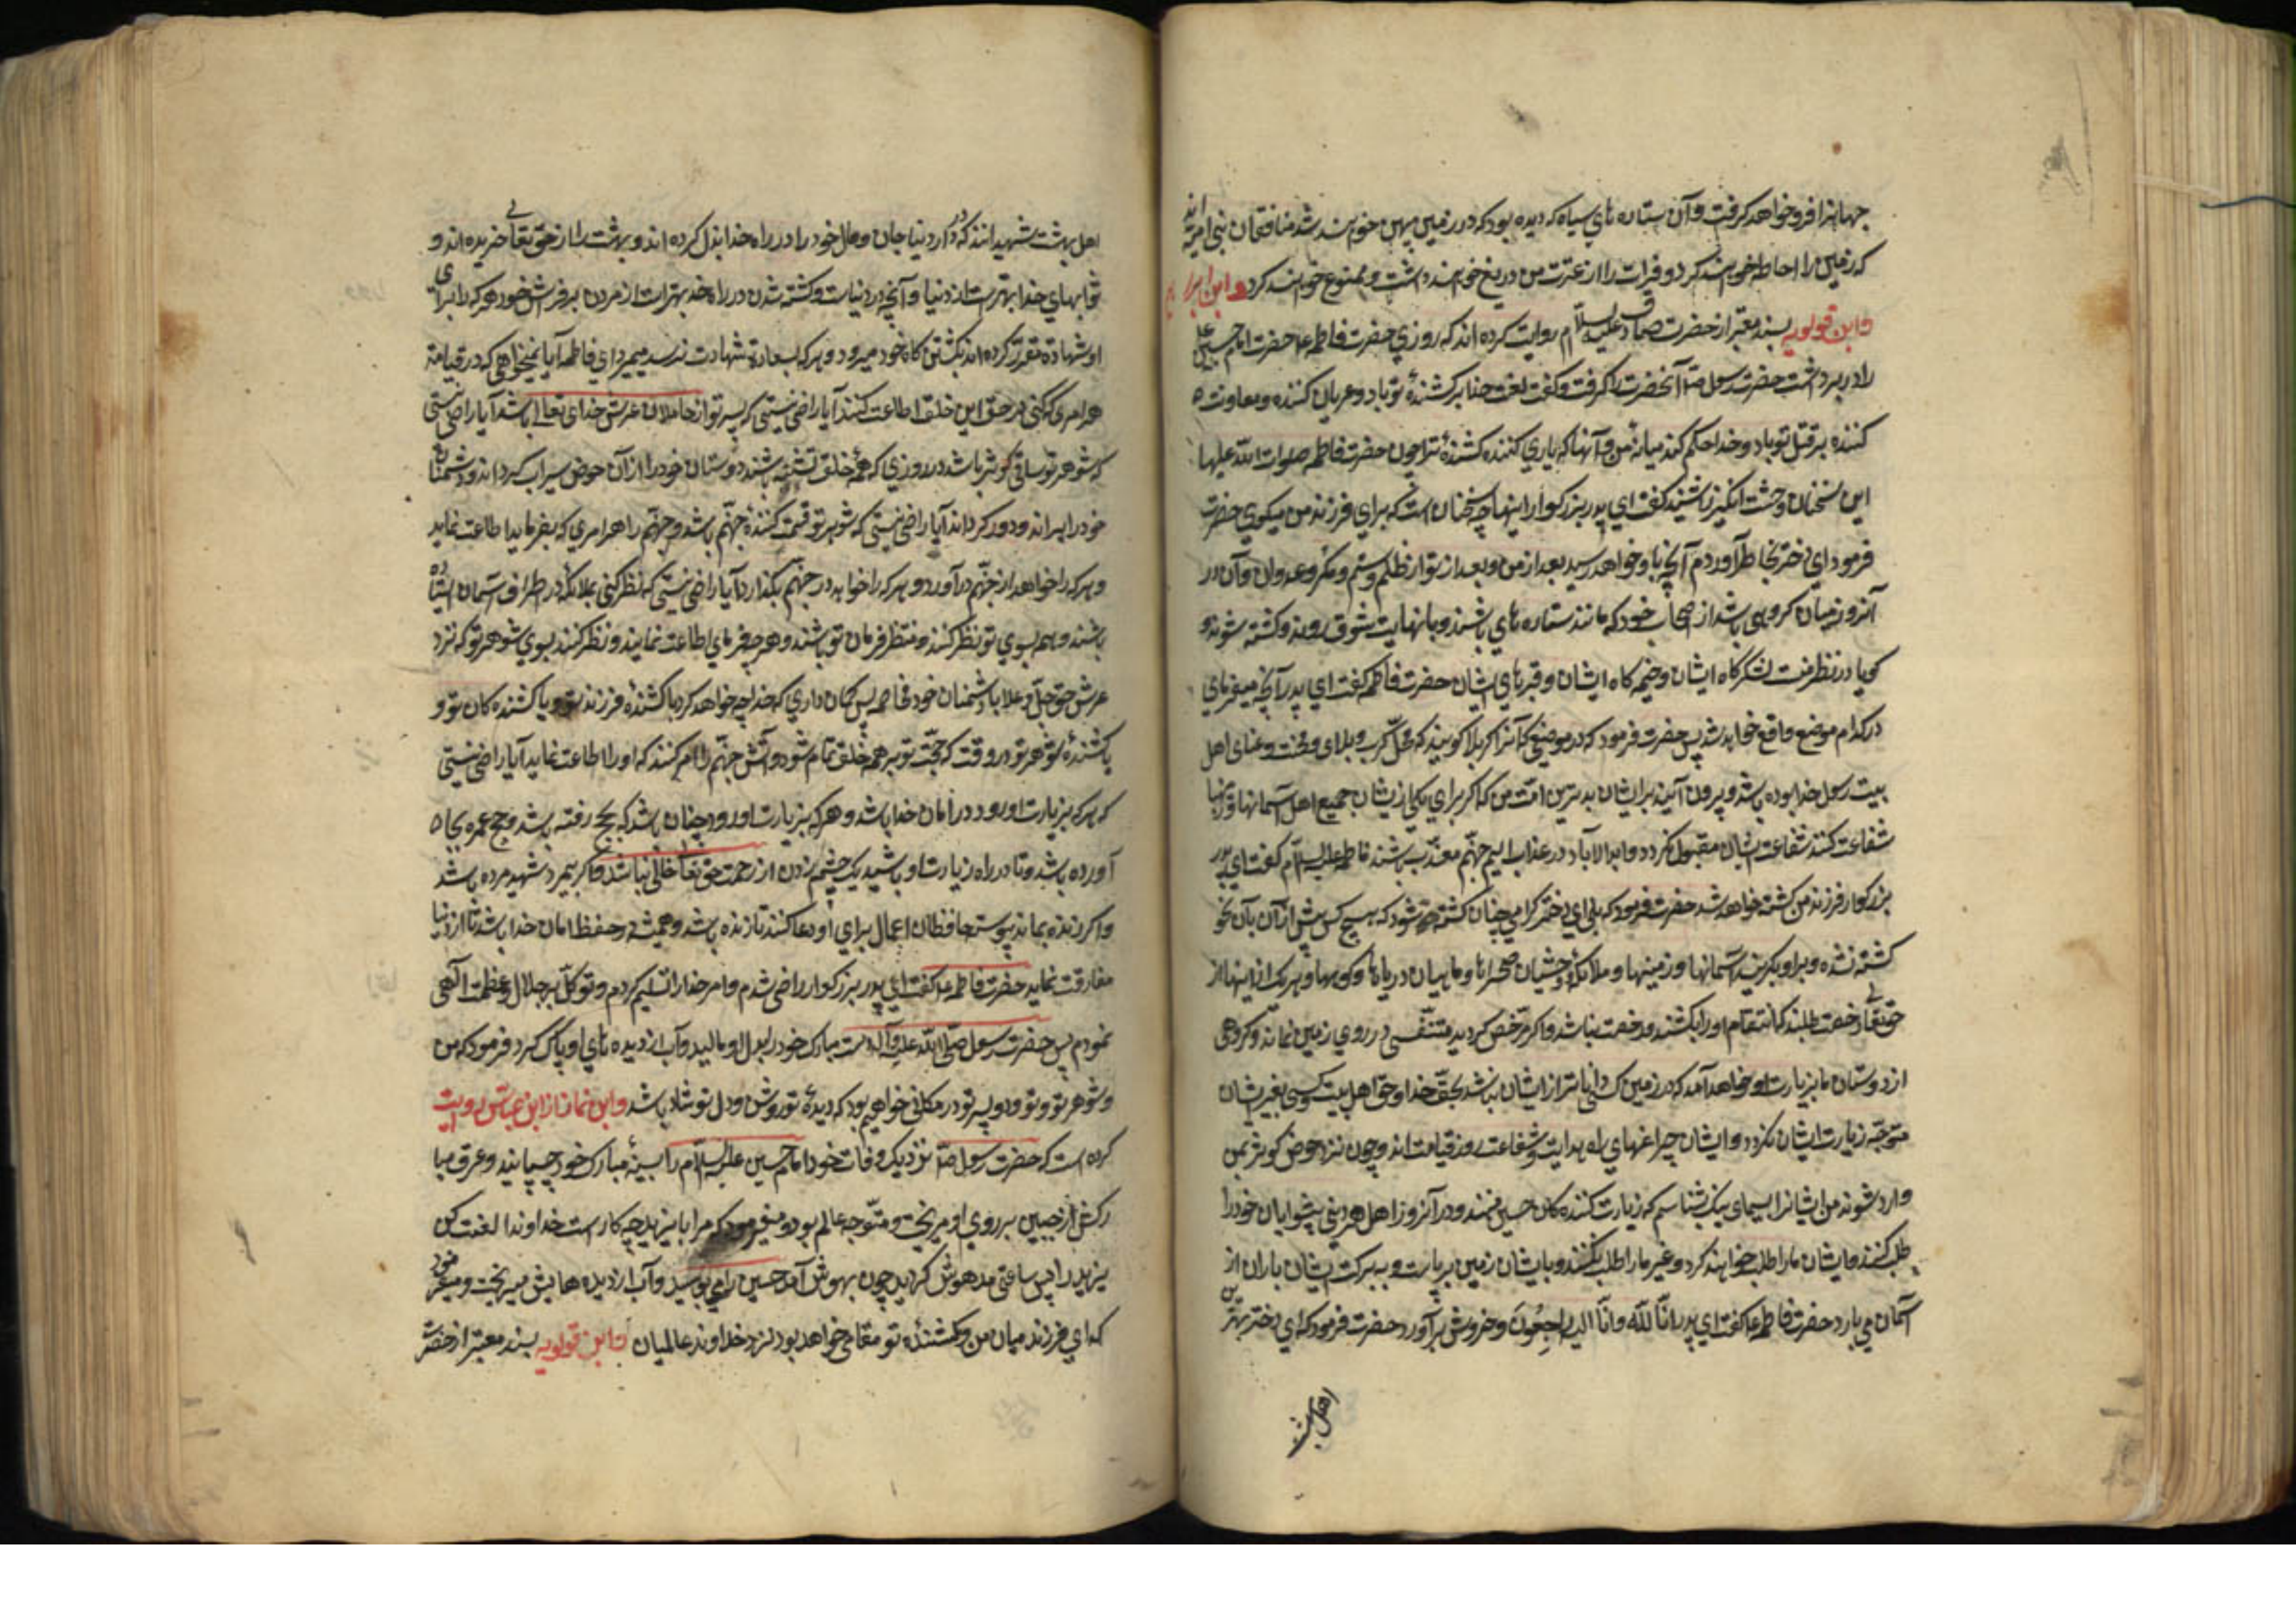 جهانرا فرو خواهد گرفت و آن ستاره های سیاه که دیده بود که در زمین پهن خواهند شد منافقان بنی امیه اند
که زمین را احاطه خواهند کرد و فرات را از عترت من دریغ خواهند داشت و ممنوع خواهند کرد و ابن
وابن قولویه بسند معتبر از حضرت صادق علیه السلام روایت کرده اند که روزی حضرت فاطمه ع حضرت امام حسین ع
را در بر داشت حضرت رسول ص آنحضرت را گرفت و گفت لعنت خدا بر کشندهٔ تو باد و عریان کننده و معاونت
کننده بر قتل تو باد و خدا حکم کند میانهٔ من و آنها که یاری کنند کشندهٔ ترا چون حضرت فاطمه صلوات الله علیها
این سخنان وحشت انگیز را شنید گفت ای پدر بزرگوار اینها چه سخنان است که برای فرزند من میگوی حضرت
فرمود ای دختر بخاطر آوردم آنچه باو خواهد رسید بعد از من و بعد از تو از ظلم و ستم و مکر و عدوان و آن در
آنروز میان گروهی باشد از اصحاب خود که مانند ستاره های باشند و با نهایت شوق روند و کشته شوند و
گویا در نظر منست لشکرگاه ایشان و خیمه گاه ایشان و قبرهای ایشان حضرت فاطمه گفت ای پدر آنچه میفرمای
در کدام موضع واقع خواهد شد پس حضرت فرمود که در موضعی که آنرا کربلا گویند که محل کرب و بلای و محنت و عنای اهل
بیت رسول خدا بوده باشد و بیرون آیند بر ایشان بدترین امت من که اگر برای یکی از ایشان جمیع اهل آسمانها و زمینها
شفاعت کنند شفاعت ایشان مقبول نگردد و ابد الآباد در عذاب الیم جهنم معذب باشند فاطمه علیها السلام گفت ای پدر
بزرگوار فرزند من کشته خواهد شد حضرت فرمود که بلی ای دختر گرامی چنان کشته شود که هیچ کس پیش از آن بآن نحو
کشته نشده و بر او بگریند آسمانها و زمینها و ملائکه و وحشیان صحراها و ماهیان دریاها و کوهها و هر یک از اینها از
حقتعالی رخصت طلبند که انتقام او را بکشند و رخصت نباشد و اگر مرخص گردید متنفسی در روی زمین نماند و گروهی
از دوستان ما بزیارت او خواهد آمد که در زمین کسی داناتر از ایشان نباشد بحق خدا و حق اهل بیت و کسی بغیر ایشان
متوجه زیارت ایشان نگردد و ایشان چراغهای راه هدایت و شفاعت روز قیامت اند و چون نزد حوض کوثر بمن
وارد شوند من ایشانرا بسیمای نیک بشناسم که زیارت کننده گان حسین منند و در آنروز اهل هر دینی پیشوایان خود را
طلب کنند و ایشان ما را طلب خواهند کرد و غیر ما را طلب نکنند و بایشان زمین برپا است و به برکت ایشان باران از
آسمان می بارد حضرت فاطمه ع گفت ای پدر انا لله و انا الیه راجعون و خروش برآورد حضرت فرمود که ای دختر بهترین
اهل بهشت
اهل بهشت شهیدانند که در دار دنیا جان و مال خود را در راه خدا بذل کرده اند و بهشت را از حق تعالی خریده اند و
ثوابهای خدا بهتر است از دنیا و آنچه در دنیاست و کشته شدن در راه خدا بهتر است از مردن بر فرش خود هر که را برای
او شهادة مقرر کرده اند بکشتن گاه خود میرود و هر که بسعادة شهادت نرسد میمیرد ای فاطمه آیا نمیخواهی که در قیامة
هر امری که کنی در حق این خلق اطاعت کنند آیا راضی نیستی که پسر تو از حاملان عرش خدای تعالی باشد آیا راضی نیستی
که شوهر تو ساقی کوثر باشد در روزی که همهٔ خلق تشنه باشند دوستان خود را از آن حوض سیراب گرداند و دشمنان
خود را براند و دور گرداند آیا راضی نیستی که شوهر تو قسمت کنندهٔ جهنم باشد و جهنم را هر امری که بفرماید اطاعت نماید
و هر که را خواهد از جهنم درآورد و هر که را خواهد در جهنم بگذارد آیا راضی نیستی که نظر کنی بملائکه در اطراف آسمان ایستاده
باشند و همه بسوی تو نظر کنند و منتظر فرمان تو باشند و هر چه فرمای اطاعت نمایند و نظر کنند بسوی شوهر تو که نزد
عرش حق جل و علا با دشمنان خود مخاصمه پس گمان داری که خدا چه خواهد کرد با کشندهٔ فرزند تو و با کشنده گان تو و
با کشندهٔ شوهر تو در وقت که حجت تو بر همه خلق تمام شود و آتش جهنم را امر کنند که او را اطاعت نماید آیا راضی نیستی
که هر که بزیارت او رود در امان خدا باشد و هر که بزیارت او رود چنان باشد که بحج رفته باشد و حج عمره بجا
آورده باشد و تا در راه زیارت او باشید یک چشم زدن از رحمت حق تعالی خالی نباشد و اگر بمیرد شهید مرده باشد
و اگر زنده بماند پیوسته حافظان اعمال برای او دعا کنند تا زنده باشد و همیشه در حفظ امان خدا باشد تا از دنیا
مفارقت نماید حضرت فاطمه ع گفت ای پدر بزرگوار راضی شدم و امر خدا را تسلیم کردم و توکل بر جلال و عظمت الهی
نمودم پس حضرت رسول صلی الله علیه و آله دست مبارک خود را بدل او مالید و آب از دیده های او پاک کرد و فرمود که من
و شوهر تو و تو و دو پسر تو در مکانی خواهیم بود که دیدهٔ تو روشن و دل تو شاد باشد وابن نما از ابن عباس روایت
کرده است که حضرت رسول ص نزدیک وفات خود امام حسین علیه السلام را بسینهٔ مبارک خود چسپانید و عرق مبا
رکش از جبین بر روی او میریخت و متوجه عالم بود و میفرمود که مرا با یزید چه کار است خداوندا لعنت کن
یزید را پس ساعتی مدهوش گردید چون بهوش آمد حسین را می بوسید و آب از دیده هایش میریخت و میفرمود
که ای فرزند میان من و کشندهٔ تو مقامی خواهد بود نزد خداوند عالمیان وابن قولویه بسند معتبر از حضرت